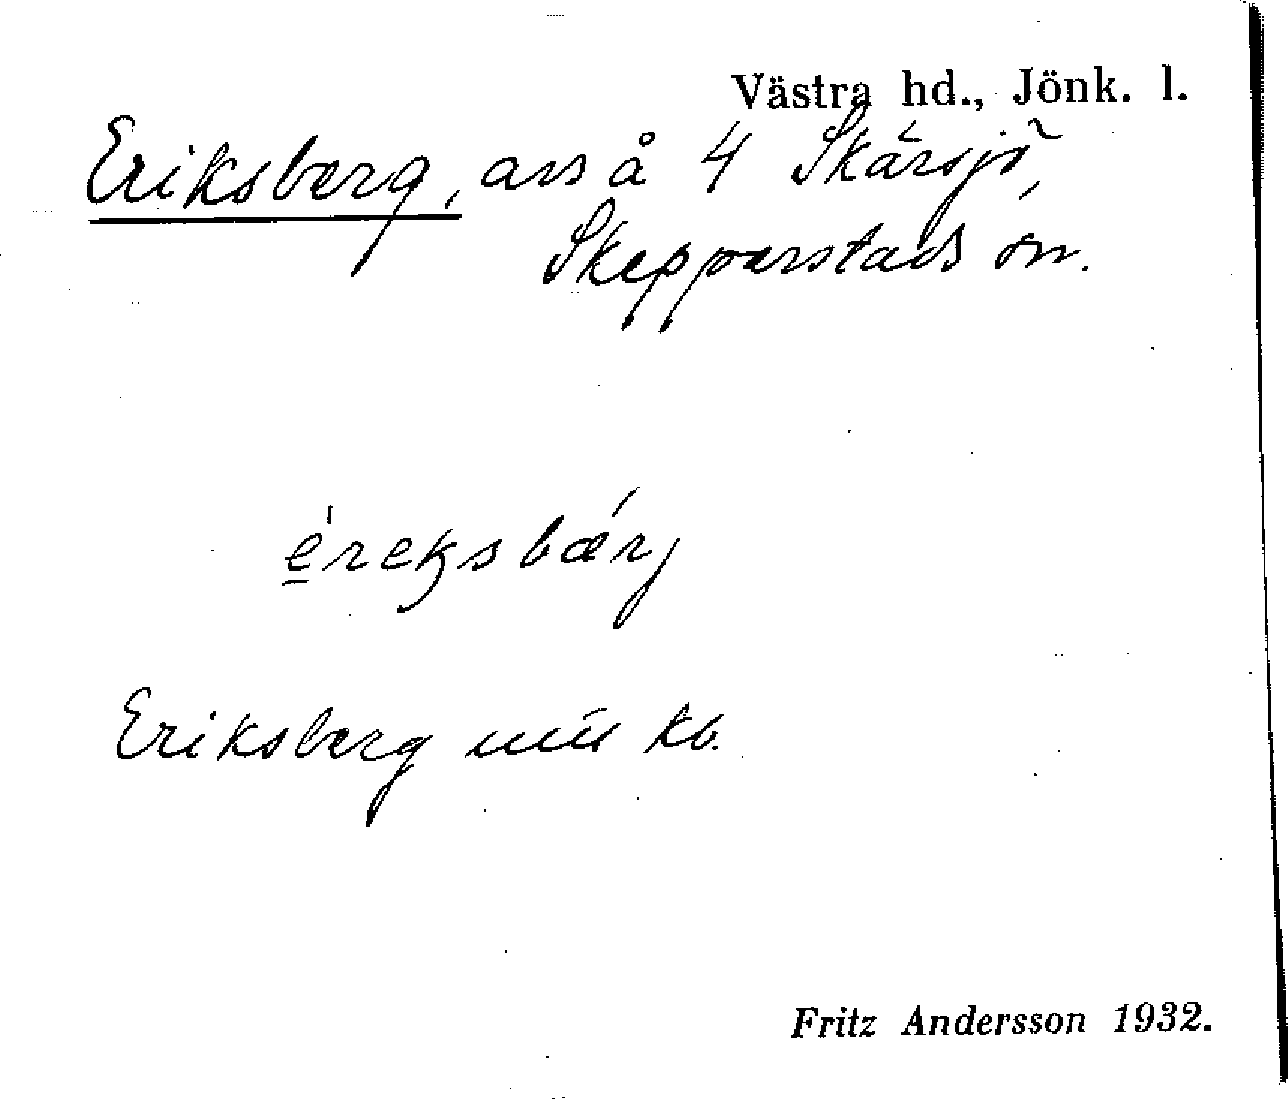 Västra hd., Jönk. l.
Eriksberg, avs å 4 Skärsjö,
Skepparstads sn.
éreksbærj
Eriksberg kb.
Fritz Andersson 1932.